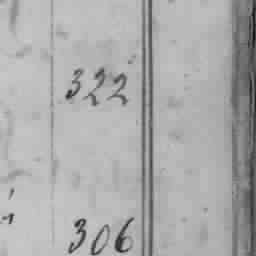 322
306